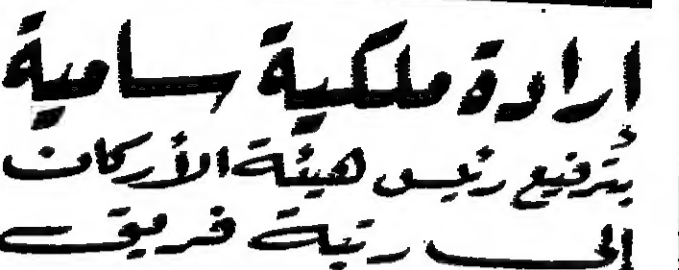 ارادة ملكية سامية
بترفيع رئيس هيئة الأركان
الى رتبة فريق